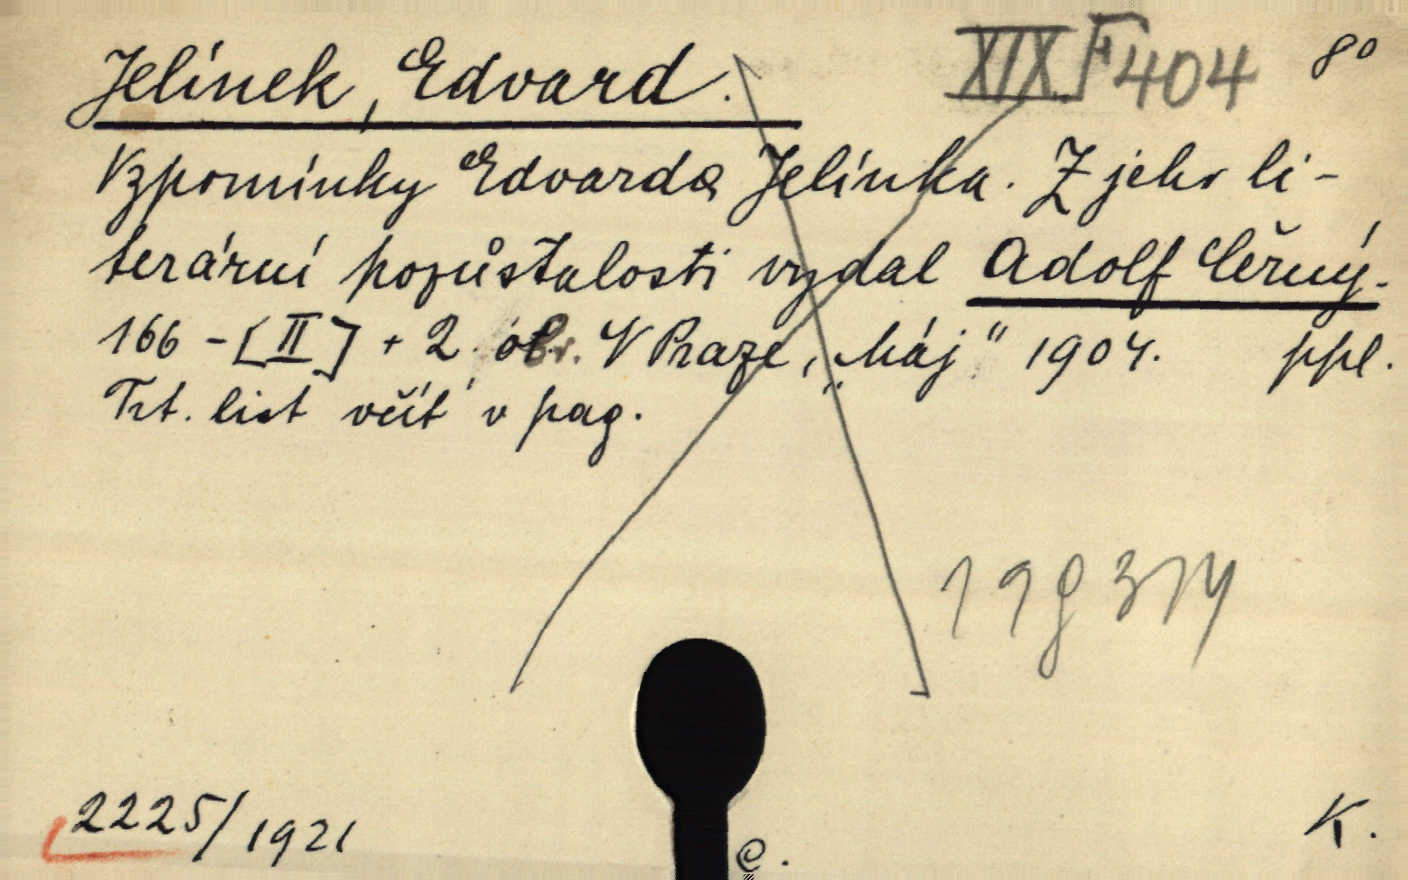 Jelínek, Edvard. XIX F 404 8°
Vzpomínky Edvarda Jelínka. Z jeho li-
terární pozůstalosti vydal Adolf Černý.
166 - [II] + 2 obr. V Praze, „Máj“ 1904. ppl.
Tit. list včít v pag.
2225/1921
K.
C.